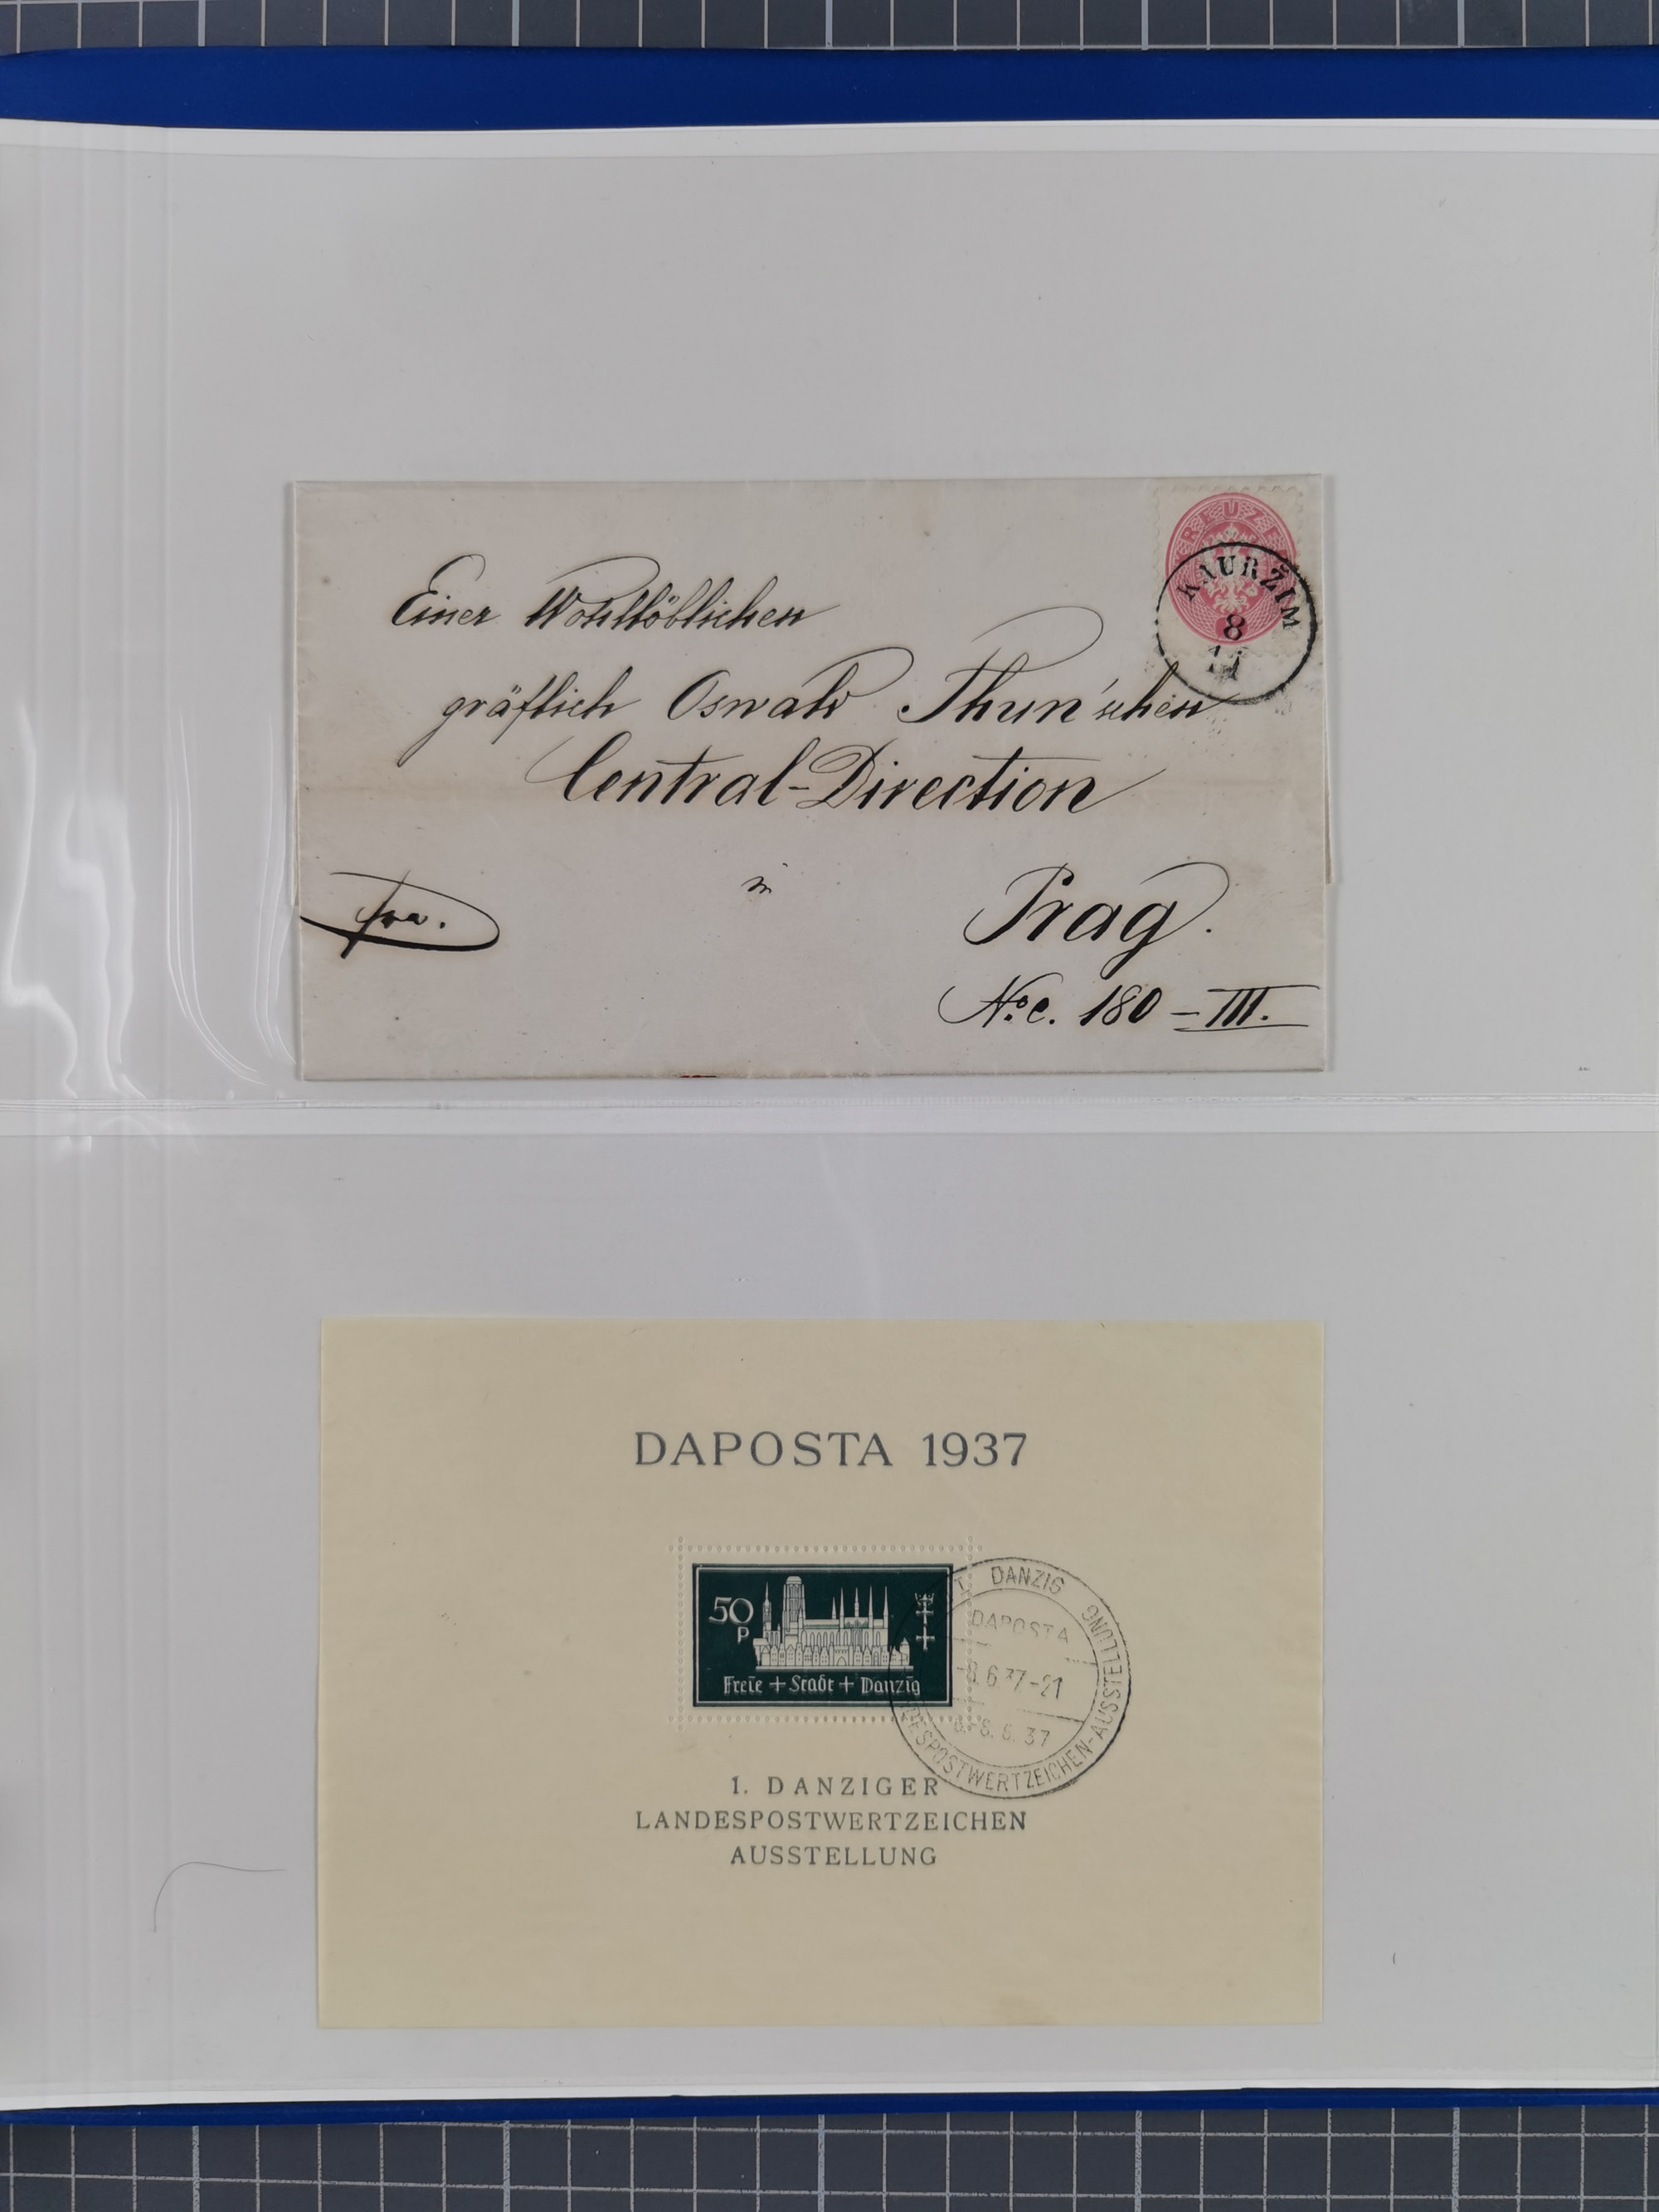 KREUZER
KAURŽIM
8
11
Einer Wohllöblichen
gräflich Oswald Thun'schen
Central-Direction
in
fra.
Prag.
No. c. 180 - III.
DAPOSTA 1937
50
P
Freie + Stadt + Danzig
1. DANZIG
DESPOSTWERTZEICHEN-AUSSTELLUNG
DAPOSTA
6.37-21
6.-8.6.37
1. DANZIGER
LANDESPOSTWERTZEICHEN
AUSSTELLUNG